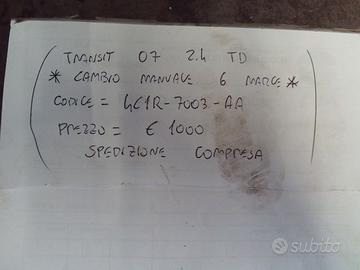 TRANSIT 07 2.4 TD
* CAMBIO MANUALE 6 MARCE *
CODICE = 4C1R-7003-AA
PREZZO = € 1000
SPEDIZIONE COMPRESA
subito